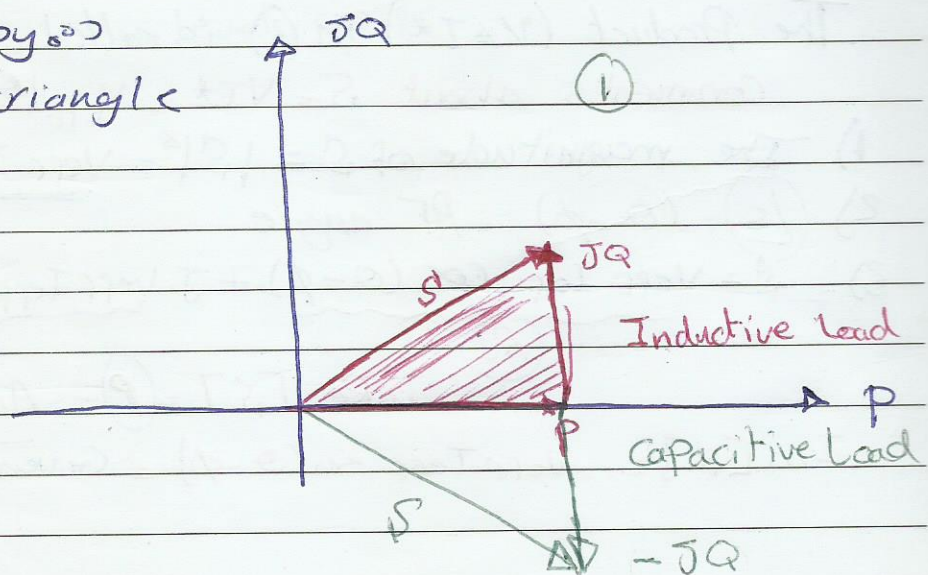 JQ
riangle
1
JQ
S
Inductive Load
P
P
Capacitive Load
S
-JQ